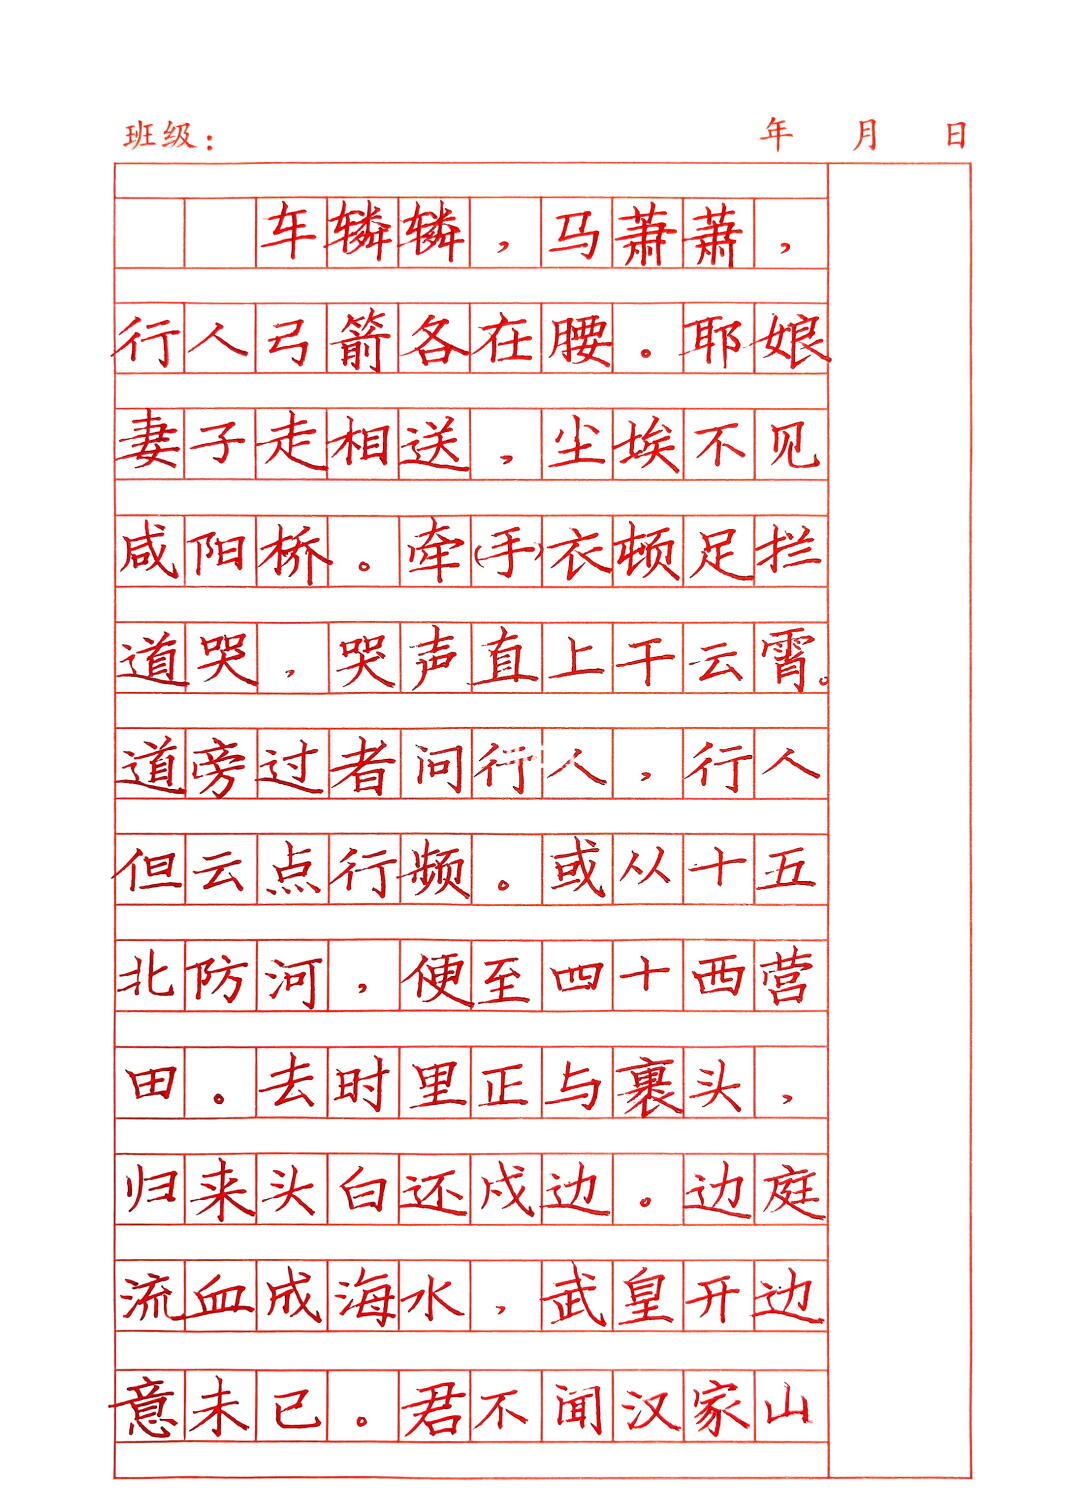 班级： 年 月 日
车辚辚，马萧萧，
行人弓箭各在腰。耶娘
妻子走相送，尘埃不见
咸阳桥。牵(手)衣顿足拦
道哭，哭声直上干云霄。
道旁过者问行人，行人
但云点行频。或从十五
北防河，便至四十西营
田。去时里正与裹头，
归来头白还戍边。边庭
流血成海水，武皇开边
意未已。君不闻汉家山